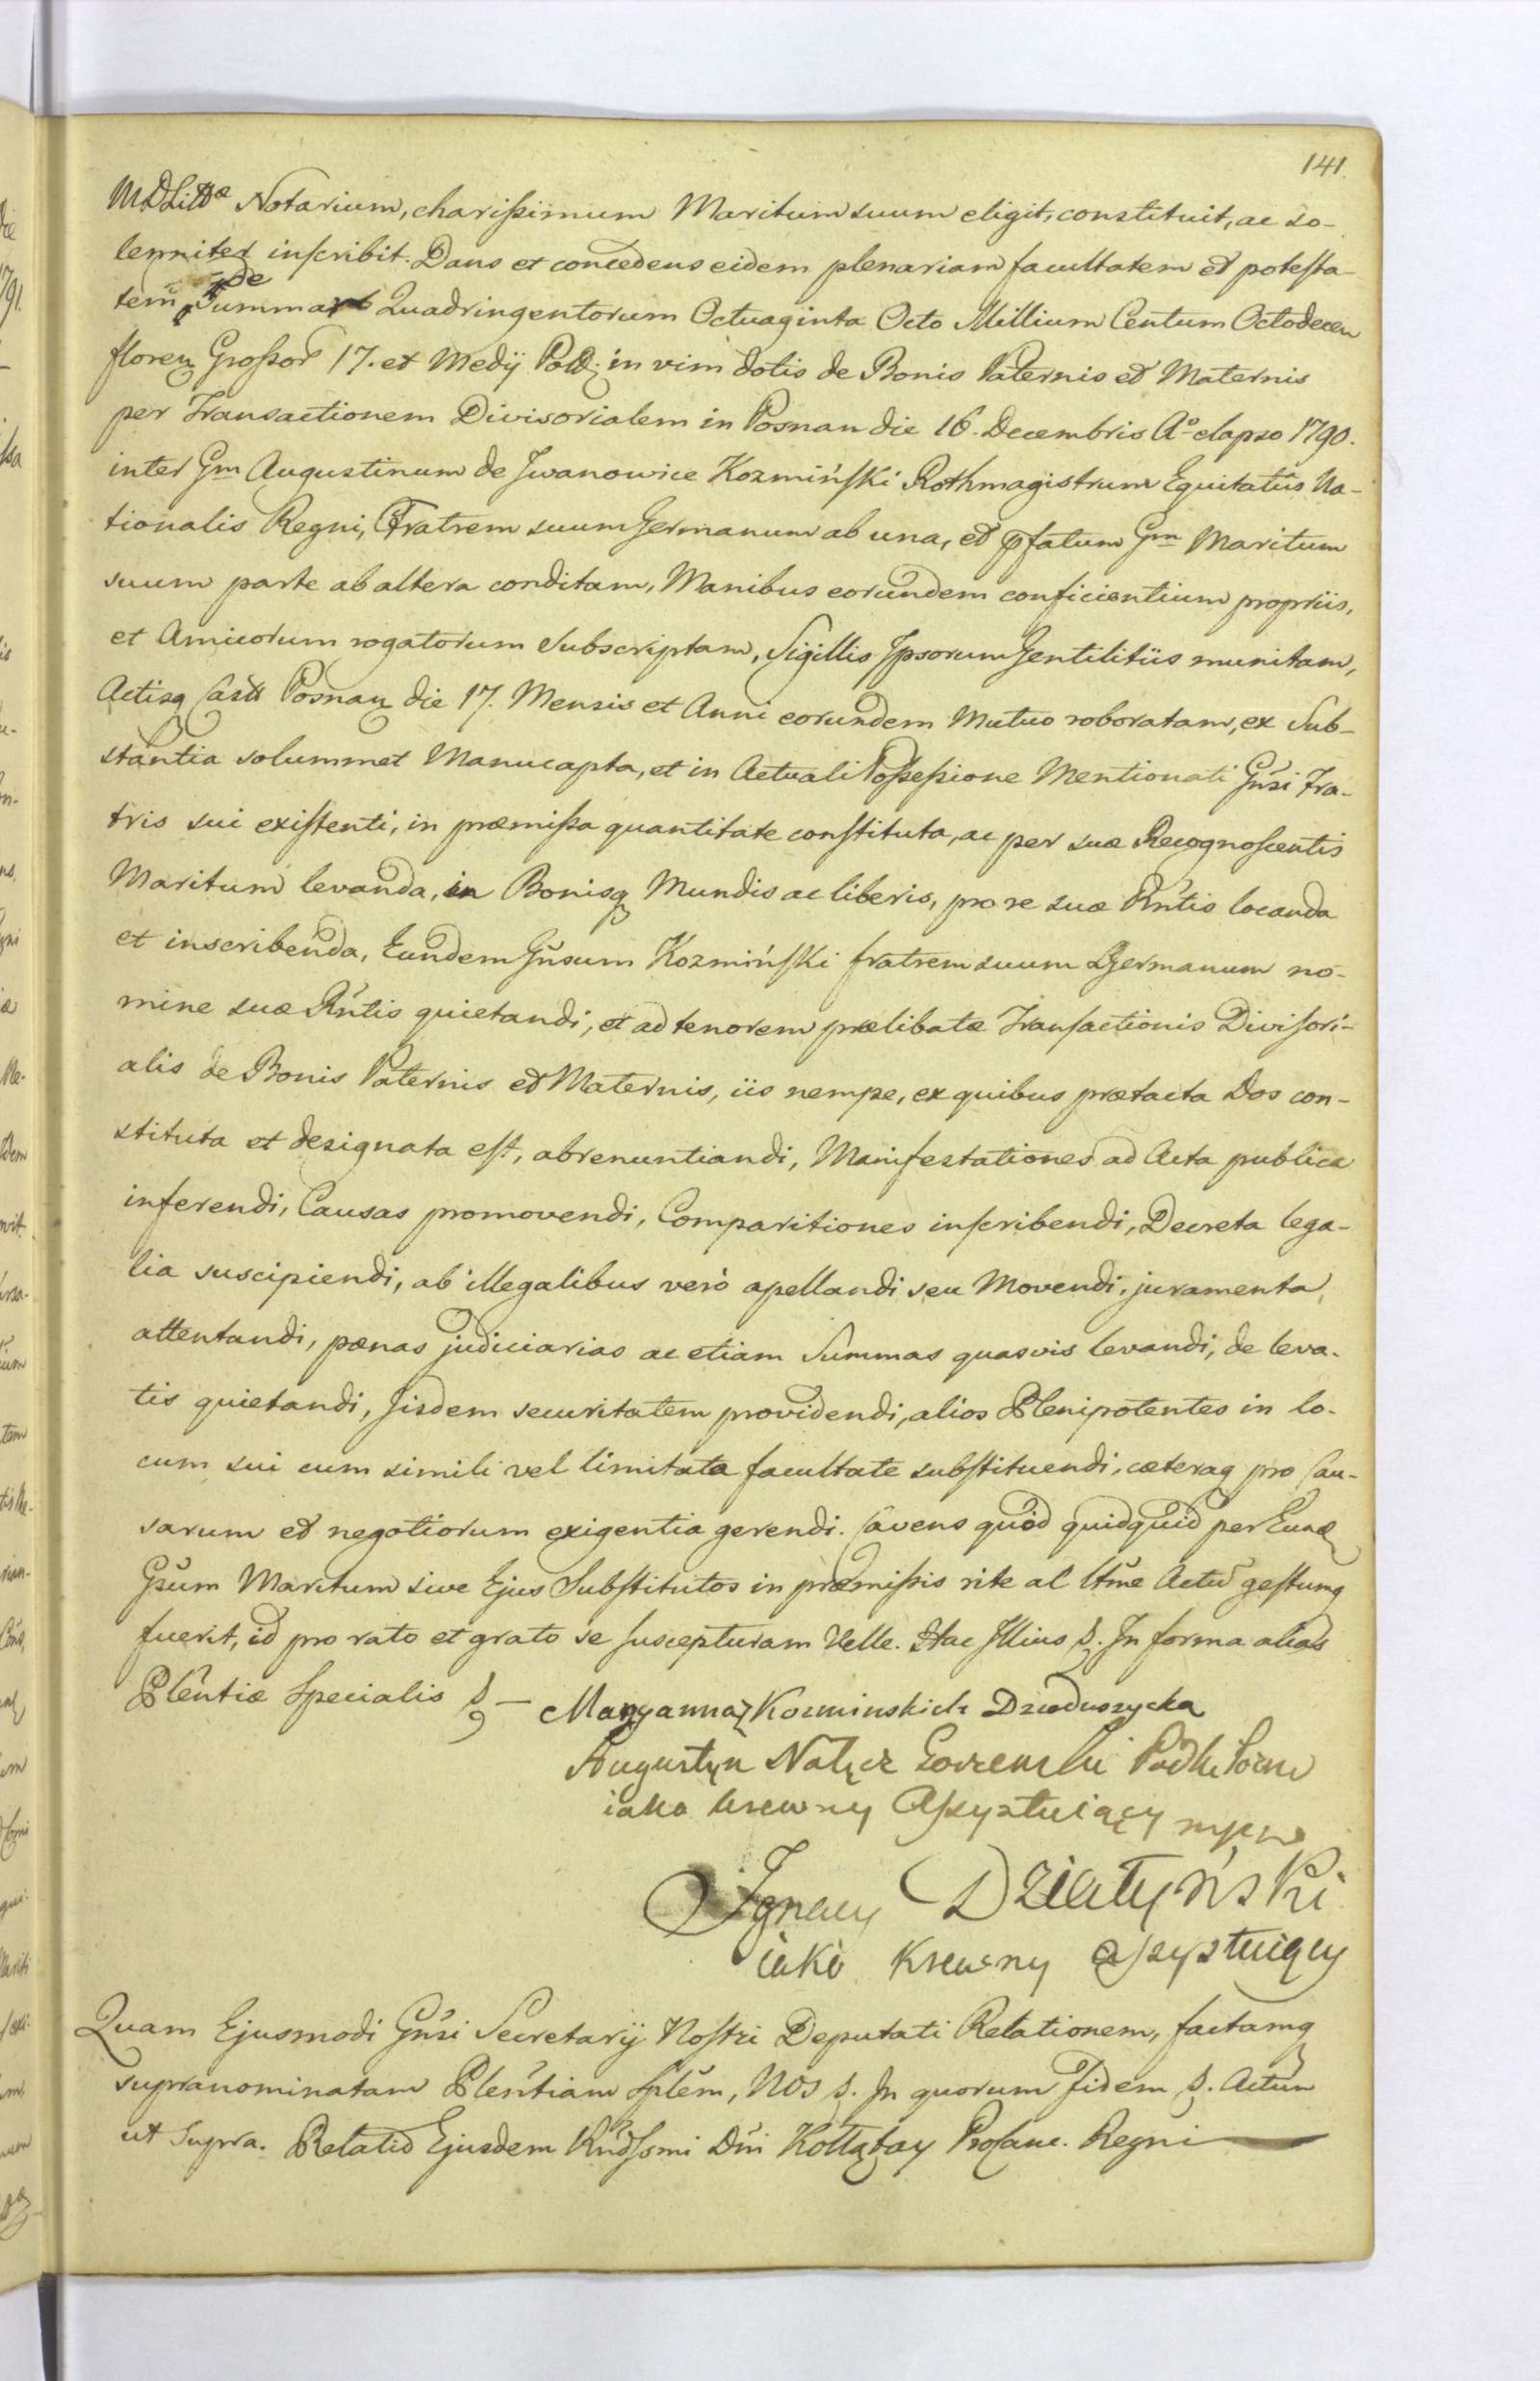 141.
MDLittæ Notarium, charissimum Maritum suum eligit, constituit, ac so-
lenniter inscribit. Dans et concedens eidem plenariam facultatem et potesta-
tem de Summa Quadringentorum Octuaginta Octo Millium Centum Octodecem
floren Grossor 17. et Medij Pold: in vim dotis de Bonis Paternis et Maternis
per Transactionem Divisorialem in Posnan die 16. Decembris Aº elapso 1790.
inter Gm Augustinum de Iwanowice Kozmiński Rothmagistrum Equitatus Na-
tionalis Regni, Fratrem suum Germanum ab una, et pfatum Gm Maritum
suum parte ab altera conditam, Manibus eorundem conficientium propriis,
et Amicorum rogatorum Subscriptam, Sigillis Ipsorum Gentilitiis munitam,
Actisq Castt Posnan die 17. Mensis et Anni eorundem Mutuo roboratam, ex Sub-
stantia solummet Manucapta, et in Actuali Possessione Mentionati Gnsi Fra-
tris sui existenti, in præmissa quantitate constituta, ac per suæ Recognoscentis
Maritum levanda, in Bonisq Mundis ac liberis, pro re suæ Rntis locanda
et inscribenda, Eundem Gnsum Kozmiński fratrem suum Germanum no-
mine suæ Rntis quietandi, et ad tenorem prælibatæ Transactionis Divisori-
alis de Bonis Paternis et Maternis, iis nempe, ex quibus prætacta Dos con-
stituta et designata est, abrenuntiandi, Manifestationes ad Acta publica
inferendi, Causas promovendi, Comparitiones inscribendi, Decreta lega-
lia suscipiendi, ab illegalibus verò apellandi seu Movendi, juramenta
attentandi, pænas judiciarias ac etiam Summas quasvis levandi, de leva-
tis quietandi, Iisdem securitatem providendi, alios Plenipotentes in lo-
cum sui cum simili vel limitata facultate substituendi, cæteraq pro Cau-
sarum et negotiorum exigentia gerendi. Cavens quòd quidquid per Eund
Gsum Maritum sive Ejus Substitutos in præmissis rite al ltme Actu gestumq
fuerit, id pro rato et grato se suscepturam Velle. Hac Illius s. In forma alias
Plentiæ Specialis s —
Maryanna z Kozminskich Dzieduszycka
Augustyn Nałęcz Gorzenski Podk Pozn
iako krewny Assystuiący mpr
Ignacy Działyński
iako Krewny assystuiący
Quam Ejusmodi Gnsi Secretarij Nostri Deputati Relationem, factamq
supranominatam Plentiam Splem, Nos s. In quorum Fidem s. Actum
ut Supra. Relatio Ejusdem Rndssmi Dni Kołłątay ProCanc. Regni